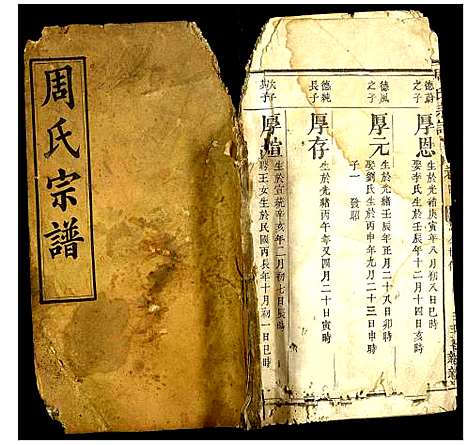 周氏宗譜
德蔚之子
厚恩
生於光緒庚寅年八月初八日巳時
娶李氏生於壬辰年十二月十四日亥時
德風之子
厚元
生於光緒壬辰年正月二十八日卯時
娶劉氏生於丙申年九月二十三日申時
子一 發昭
德純長子
厚存
生於光緒丙午年又四月二十日寅時
次子
厚煊
生於宣統辛亥年二月初七日辰時
王女生於民國丙辰年十月初一日巳時